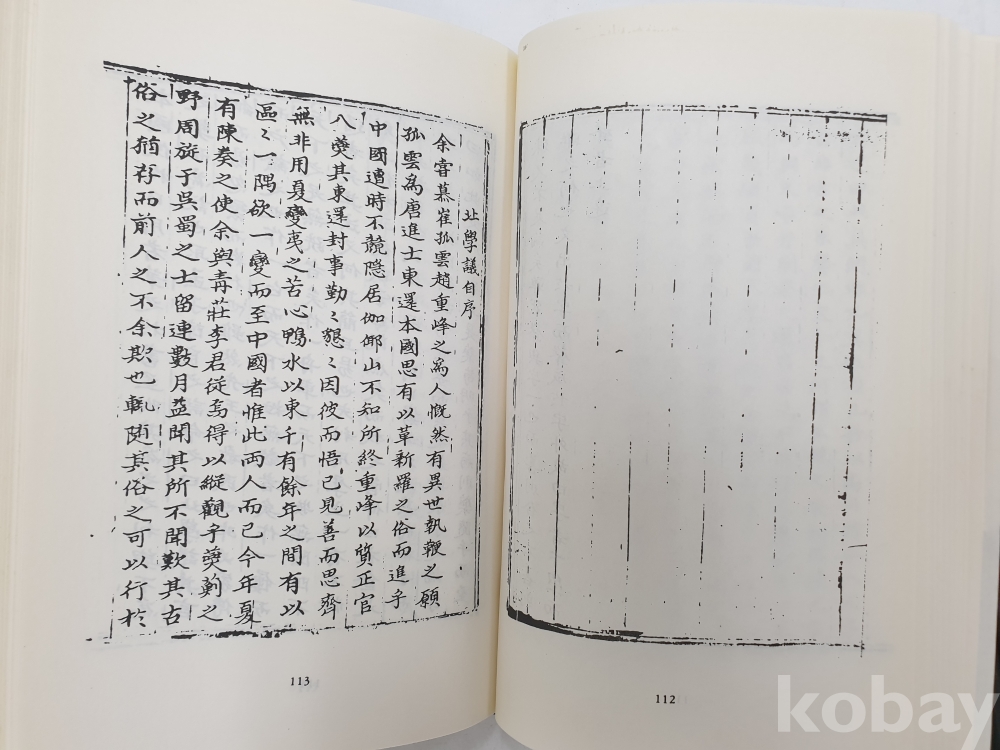 北學議自序
余嘗慕崔孤雲趙重峰之爲人慨然有異世執鞭之願
孤雲爲唐進士東還本國思有以革新羅之俗而進乎
中國遭時不競隱居伽倻山不知所終重峰以質正官
入燕其東還封事勤〻懇〻因彼而悟已見善而思齊
無非用夏變夷之苦心鴨水以東千有餘年之間有以
區〻一隅欲一變而至中國者惟此兩人而已今年夏
有陳奏之使余與青莊李君從焉得以縱觀乎燕薊之
野周旋于吳蜀之士留連數月益聞其所不聞歎其古
俗之猶存而前人之不余欺也輒隨其俗之可以行於
113
112
kobay